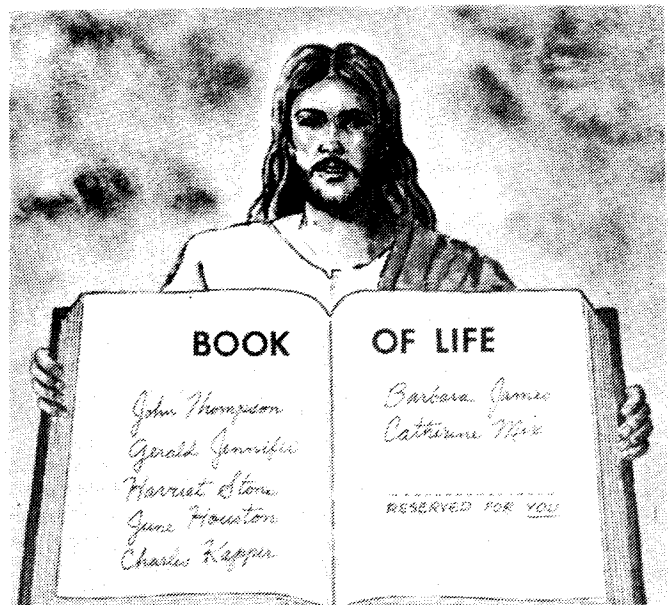 BOOK OF LIFE
John Thompson
Gerald Jennifer
Harriet Stone
June Houston
Charles Kapper
Barbara James
Catherine Mix
RESERVED FOR YOU